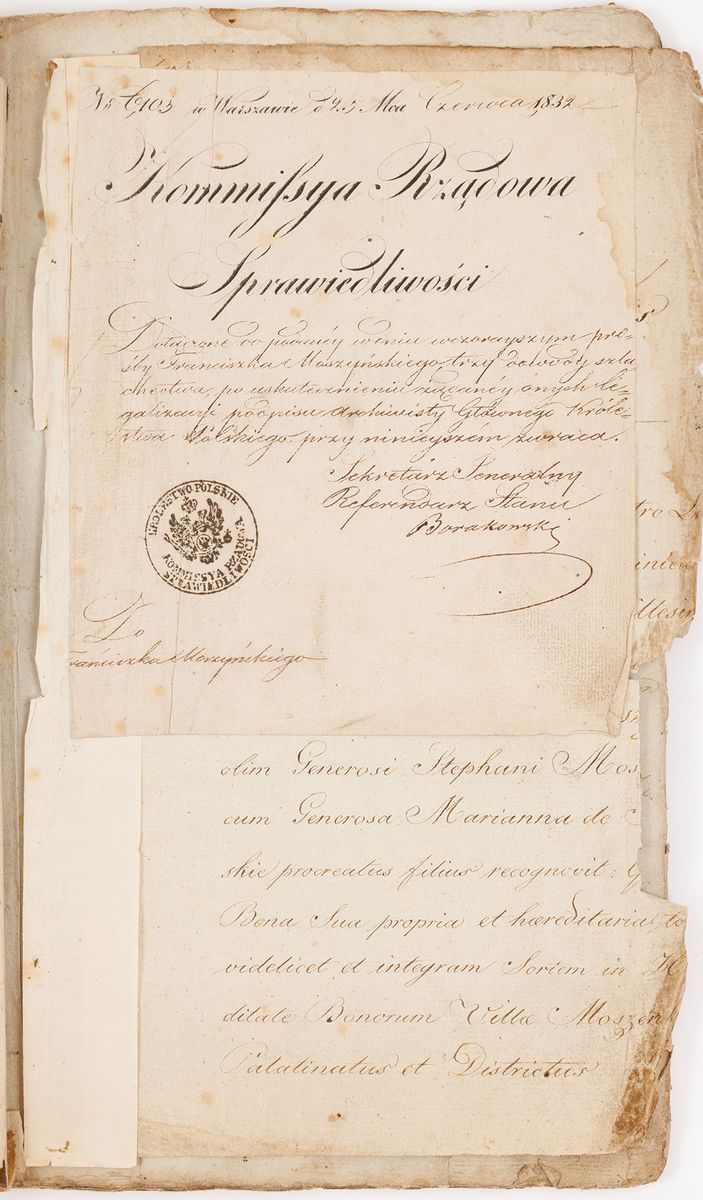 Nr 6103 w Warszawie d 25 Mca Czerwca 1832
Kommissya Rządowa
Sprawiedliwości
Dołączone do podanéy w dniu wczorayszym pro=
śby Franciszka Moszyńskiego, trzy dowody szla=
chectwa, po uskutecznieniu żądanéy onych le=
galizacyi podpisu Archiwisty Głównego Króle=
stwa Polskiego przy ninieyszém zwraca.
Sekretarz Jeneralny
Referendarz Stanu
Borakowski
KRÓLESTWO POLSKIE
KOMMISSYA RZĄDOWA
SPRAWIEDLIWOŚCI
Do
Franciszka Moszyńskiego
olim Generosi Stephani Mos
cum Generosa Marianna de
skie procreatus filius recognovit:
Bona Sua propria et hæreditaria to
videlicet et integram Sortem in H
ditate Bonorum Villæ Moszen
Palatinatus et Districtus